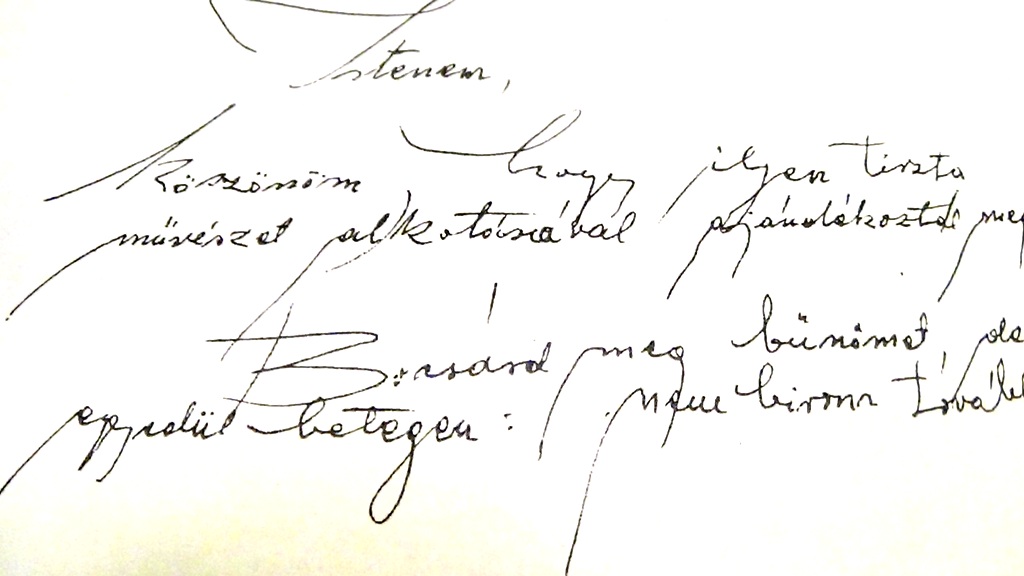 Istenem,
köszönöm hogy ilyen tiszta
művészet alkotásával ajándékoztál meg
Bocsásd meg bűnömet, de
egyedül betegen: nem birom továb